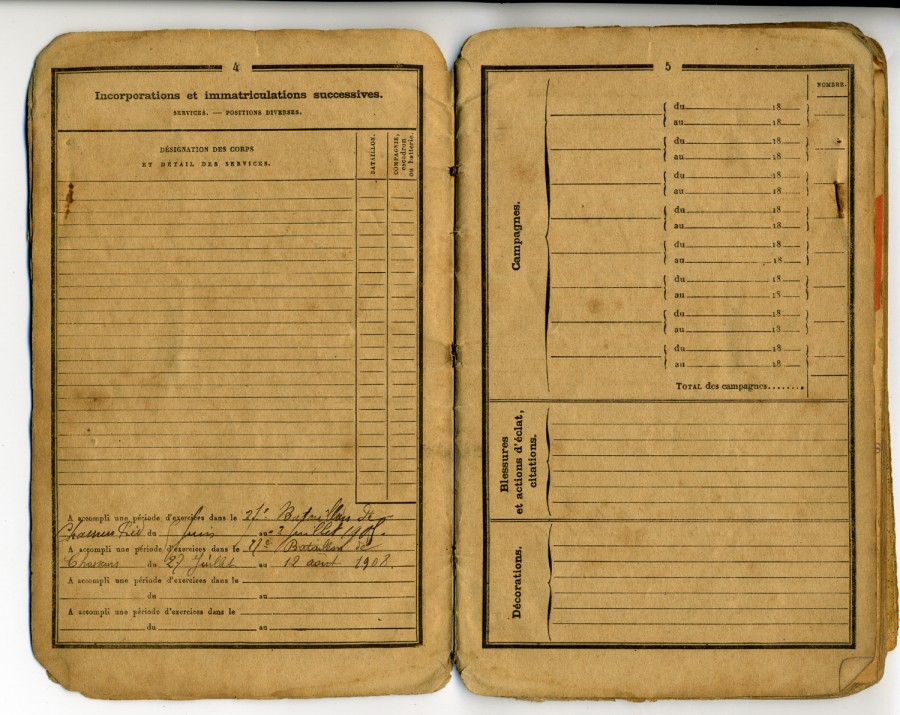 4
Incorporations et immatriculations successives.
SERVICES. — POSITIONS DIVERSES.
DÉSIGNATION DES CORPS
ET DÉTAIL DES SERVICES.
BATAILLON.
COMPAGNIE,
escadron
ou batterie.
A accompli une période d'exercices dans le 21e Bataillon de
Chasseurs du Juin au 2 juillet
A accompli une période d'exercices dans le 21e Bataillon de
Chasseurs du 27 Juillet au 12 août 1908.
A accompli une période d'exercices dans le
du au
A accompli une période d'exercices dans le
du au
5
NOMBRE.
Campagnes.
du 18
au 18
du 18
au 18
du 18
au 18
du 18
au 18
du 18
au 18
du 18
au 18
du 18
au 18
du 18
au 18
TOTAL des campagnes.......
Blessures
et actions d'éclat,
citations.
Décorations.